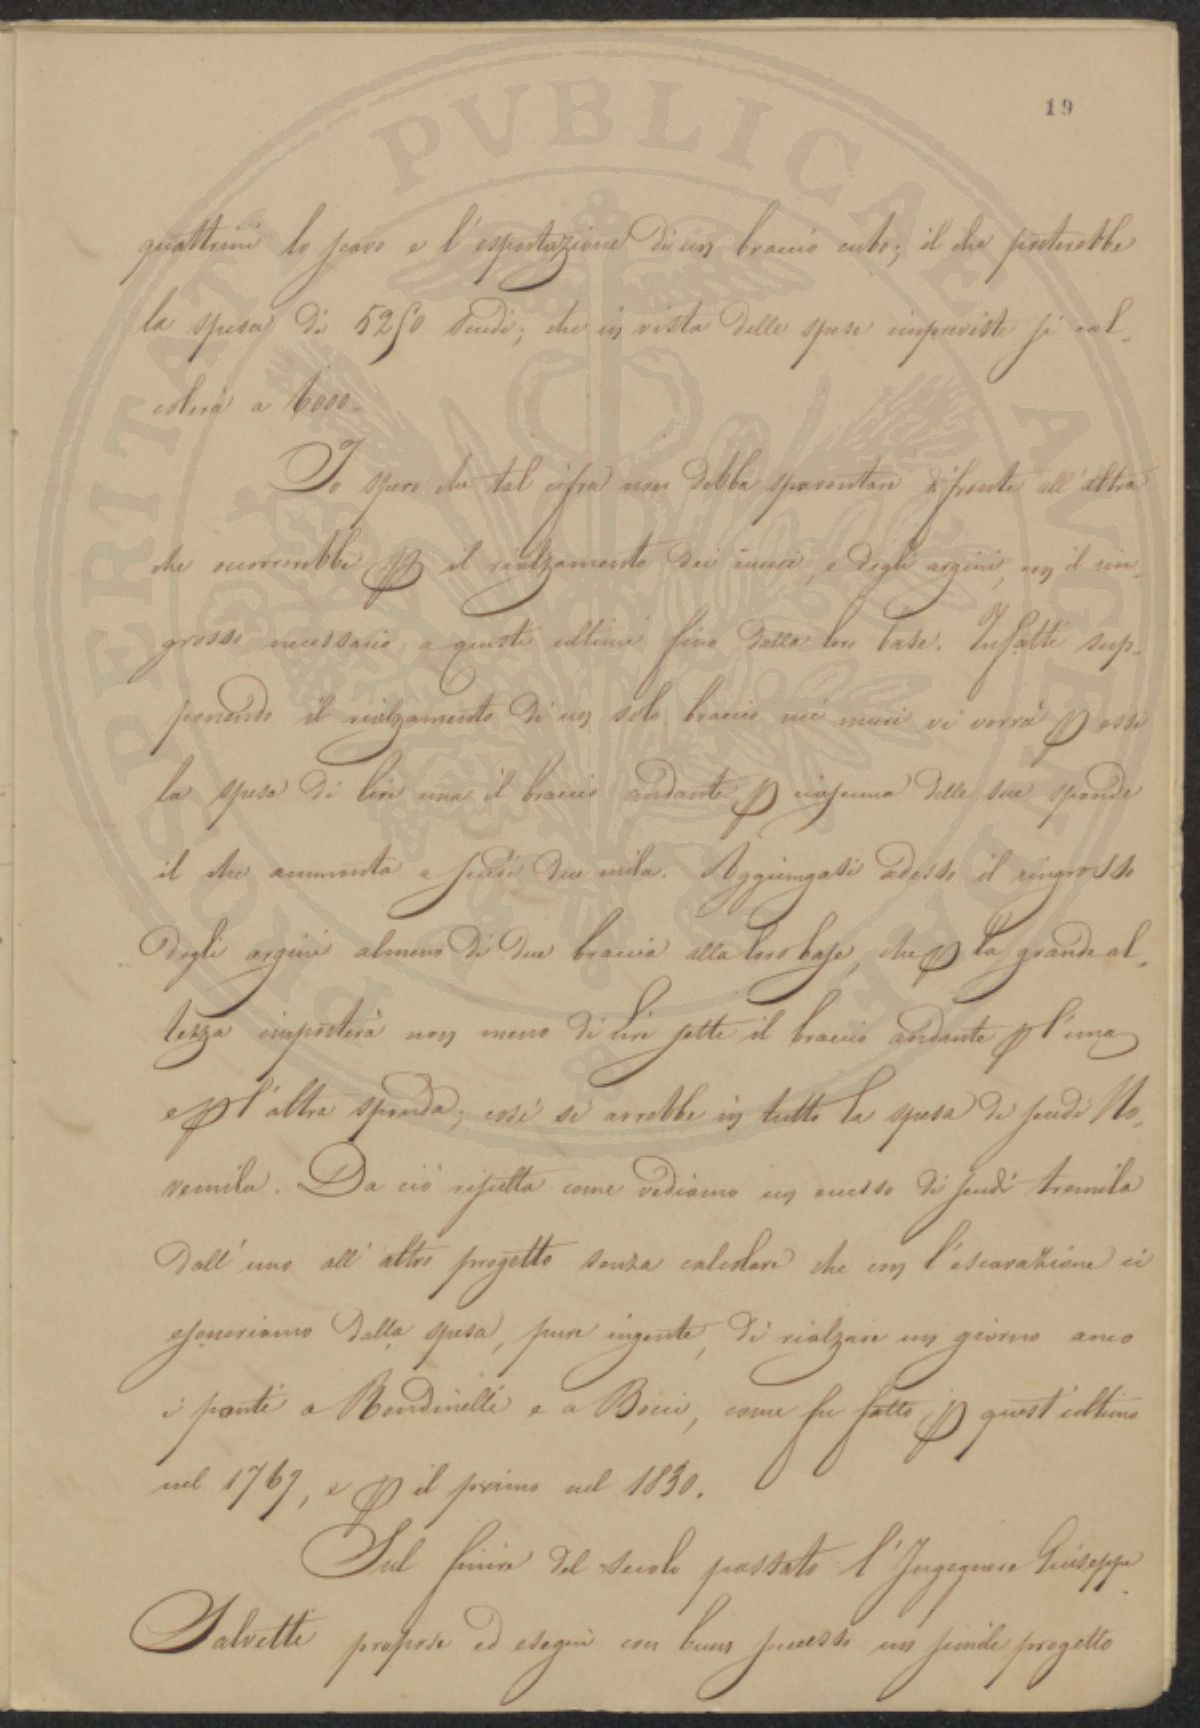 19
quattrini lo scavo e l'esportazione di un braccio cubo; il che porterebbe
la spesa di 5250 scudi; che in vista delle spese impreviste si cal-
colerà a 6000.
Io spero che tal cifra non debba spaventare di fronte all'altra
che occorrerebbe p il rialzamento dei muri, e degli argini, con il rin-
grosso necessario a questi ultimi fino dalla loro base. Infatti sup-
ponendo il rialzamento di un solo braccio nei muri vi vorrà p essi
la spesa di lire una il braccio andante p ciascuna delle sue sponde
il che ammonta a scudi due mila. Aggiungasi adesso il ringrosso
degli argini almeno di due braccia alla loro base, che p la grande al-
tezza importerà non meno di lire sette il braccio andante p l'una
e p l'altra sponda; così si avrebbe in tutto la spesa di scudi No-
vemila. Da ciò risulta come vediamo un eccesso di scudi tremila
dall'uno all'altro progetto senza calcolare che con l'escavazione ci
esoneriamo dalla spesa, pure ingente, di rialzare un giorno anco
i ponti a Rondinelli e a Bocci, come fu fatto p quest'ultimo
nel 1767, e p il primo nel 1830.
Sul finire del secolo passato l'Ingegnere Giuseppe
Salvetti propose ed eseguì con buon successo un simile progetto
PROSPERITATI PVBLICAE AVGENDAE